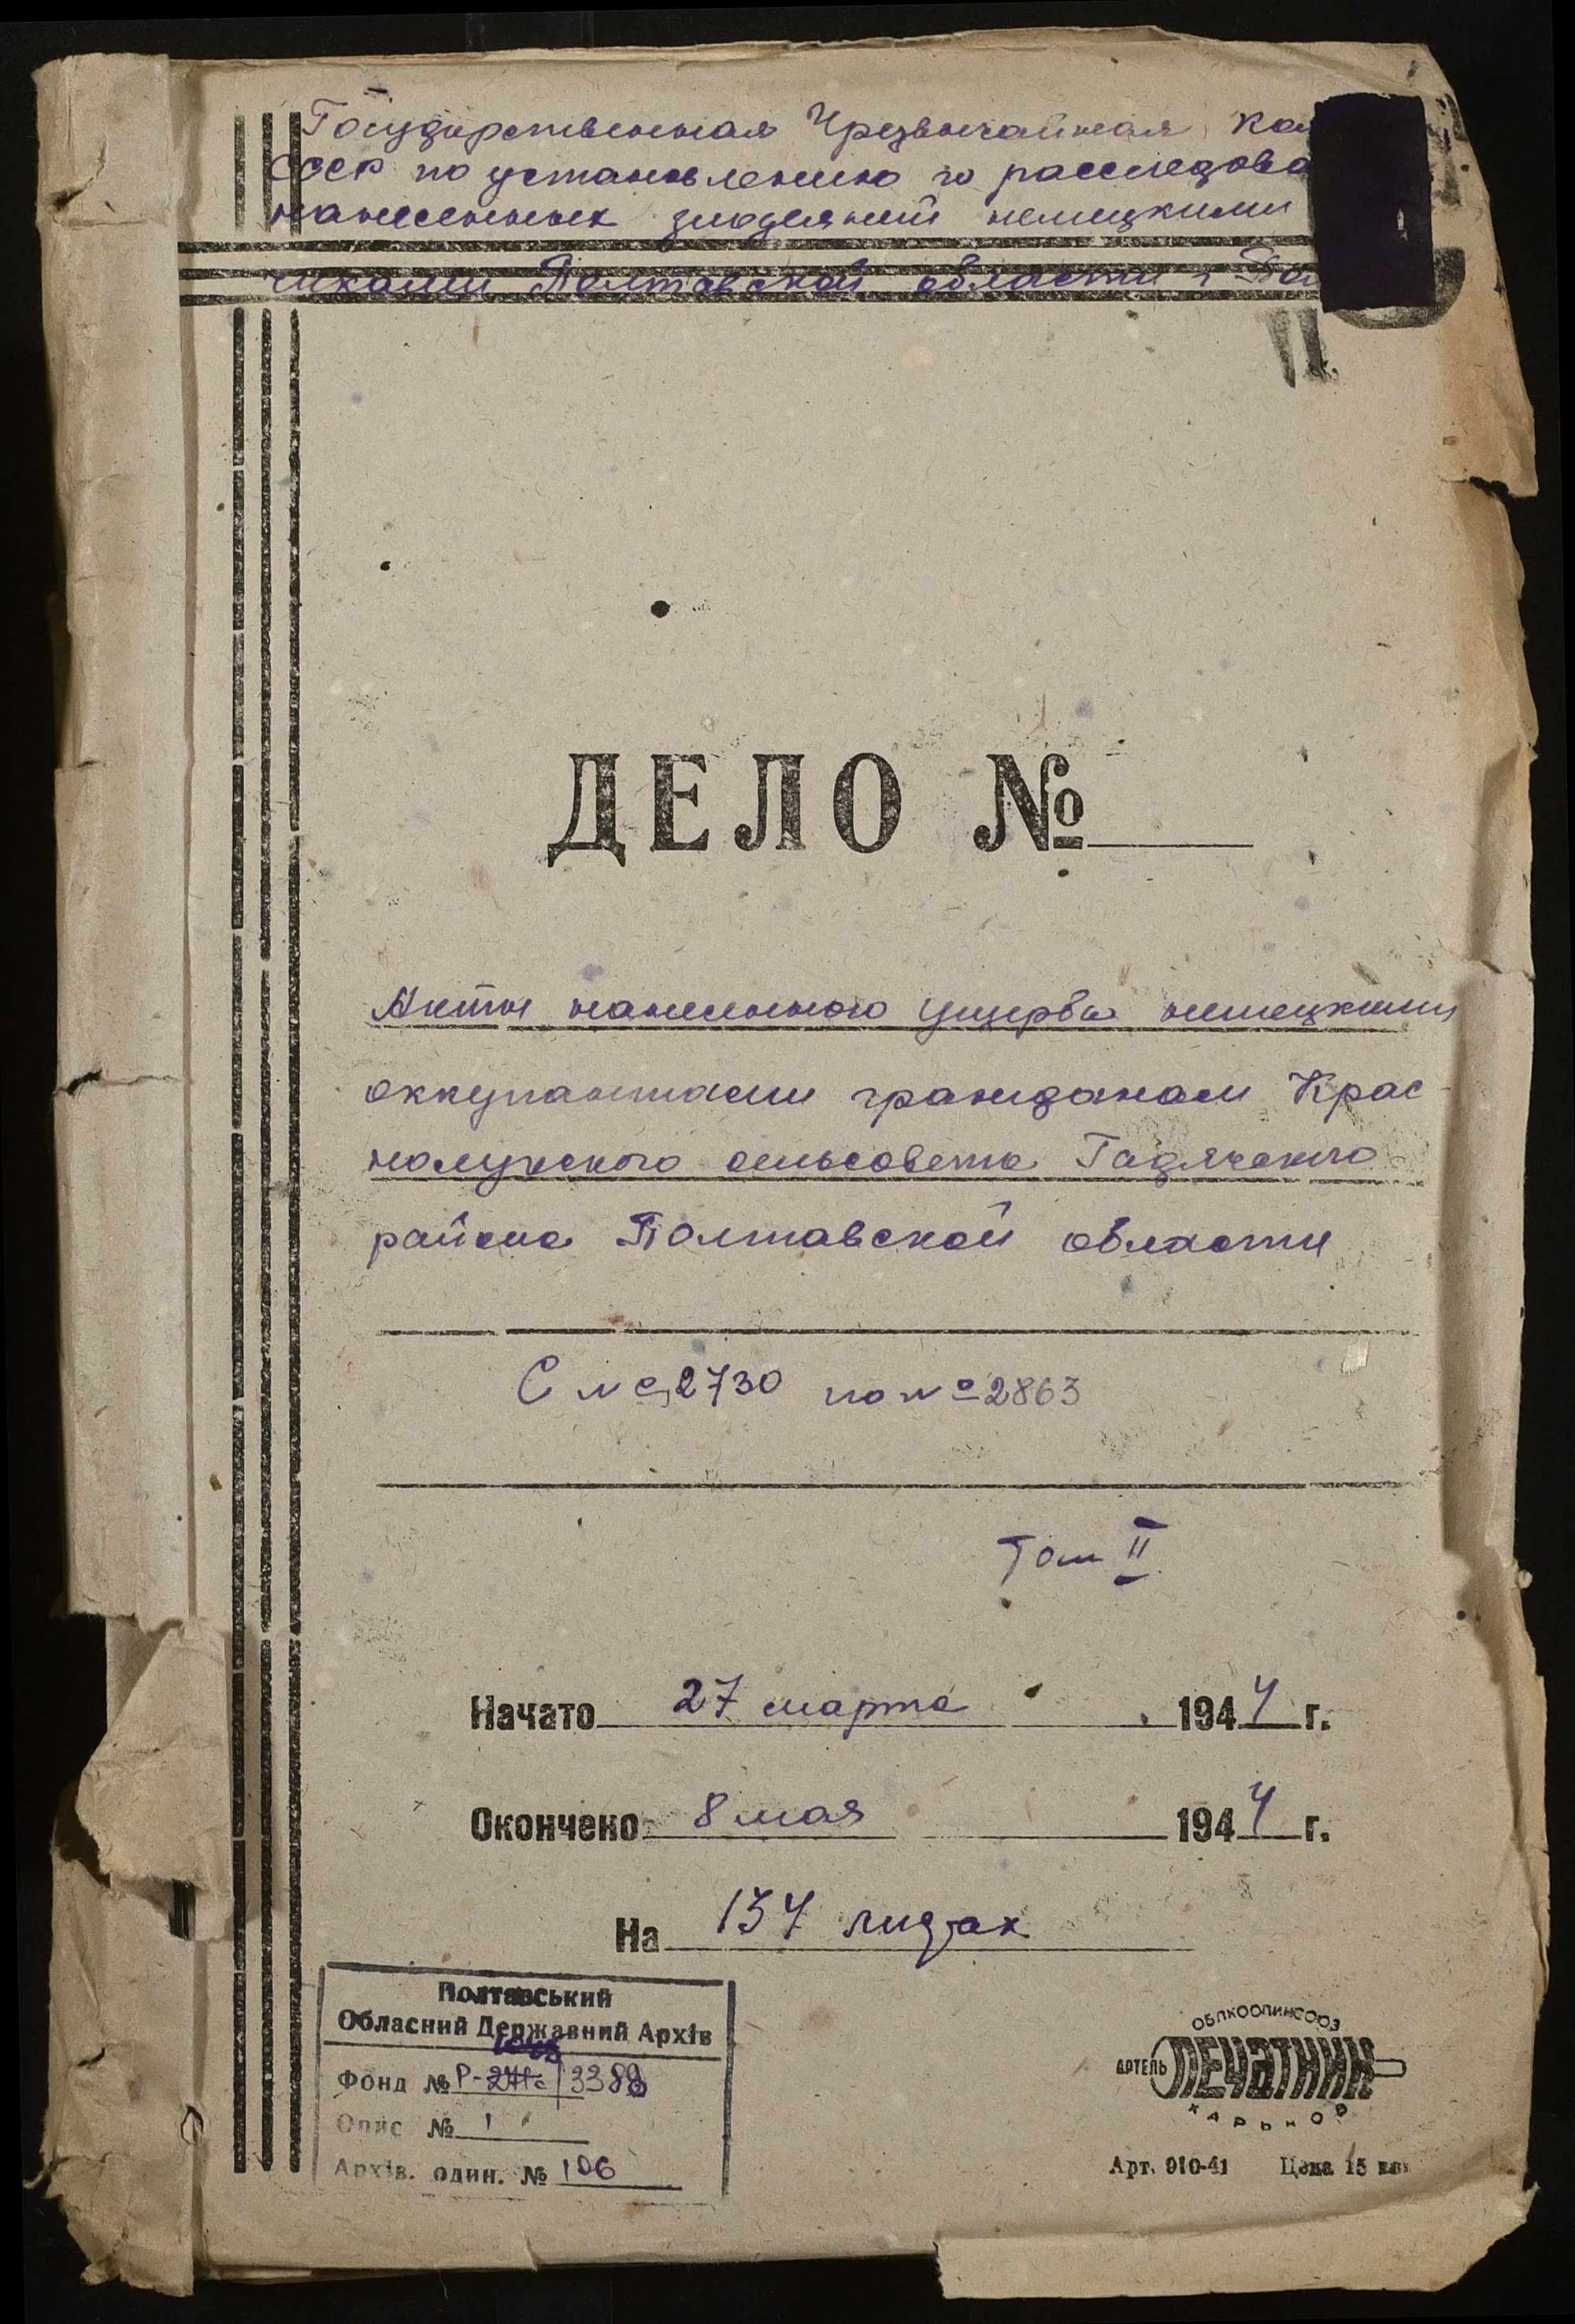 Государственная Чрезвычайная Ком
СССР по установлению и расследова
нанесенных злодеяний немецкими
чиками Полтавской области г. Пол
ДЕЛО №
Акты нанесенного ущерба немецкими
оккупантами гражданам Крас-
нолукского сельсовета Гадячского
района Полтавской области
С №2730 по №2863
Том II
Начато 27 марта 1944 г.
Окончено 8 мая 1944 г.
На 134 лидах
Полтавський
Обласний Державний Архів
Фонд № Р- 3388
Опис № 1
Архів. один. № 106
ОБЛКООПИНСОЮЗ
АРТЕЛЬ ПЕЧАТНИК
ХАРЬКОВ
Арт. 010-41 Цена 15 коп